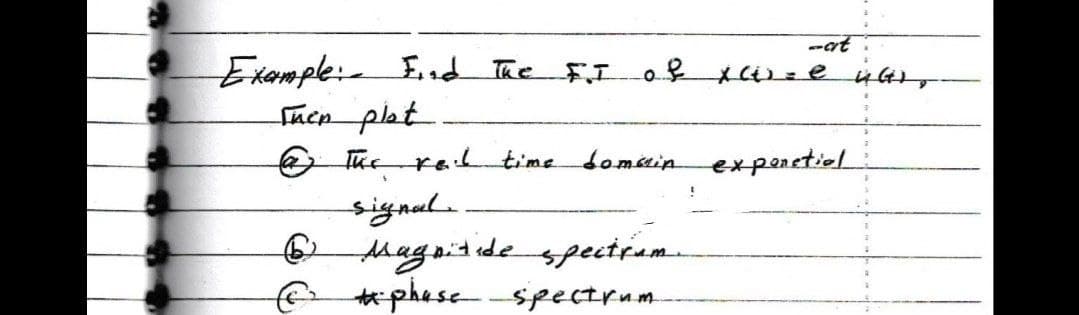 Example:- Find The F.T of x(t) = e^-at u(t),
Then plot
(a) The real time domain exponetial
signal.
(b) Magnitude spectrum.
(c) phase spectrum